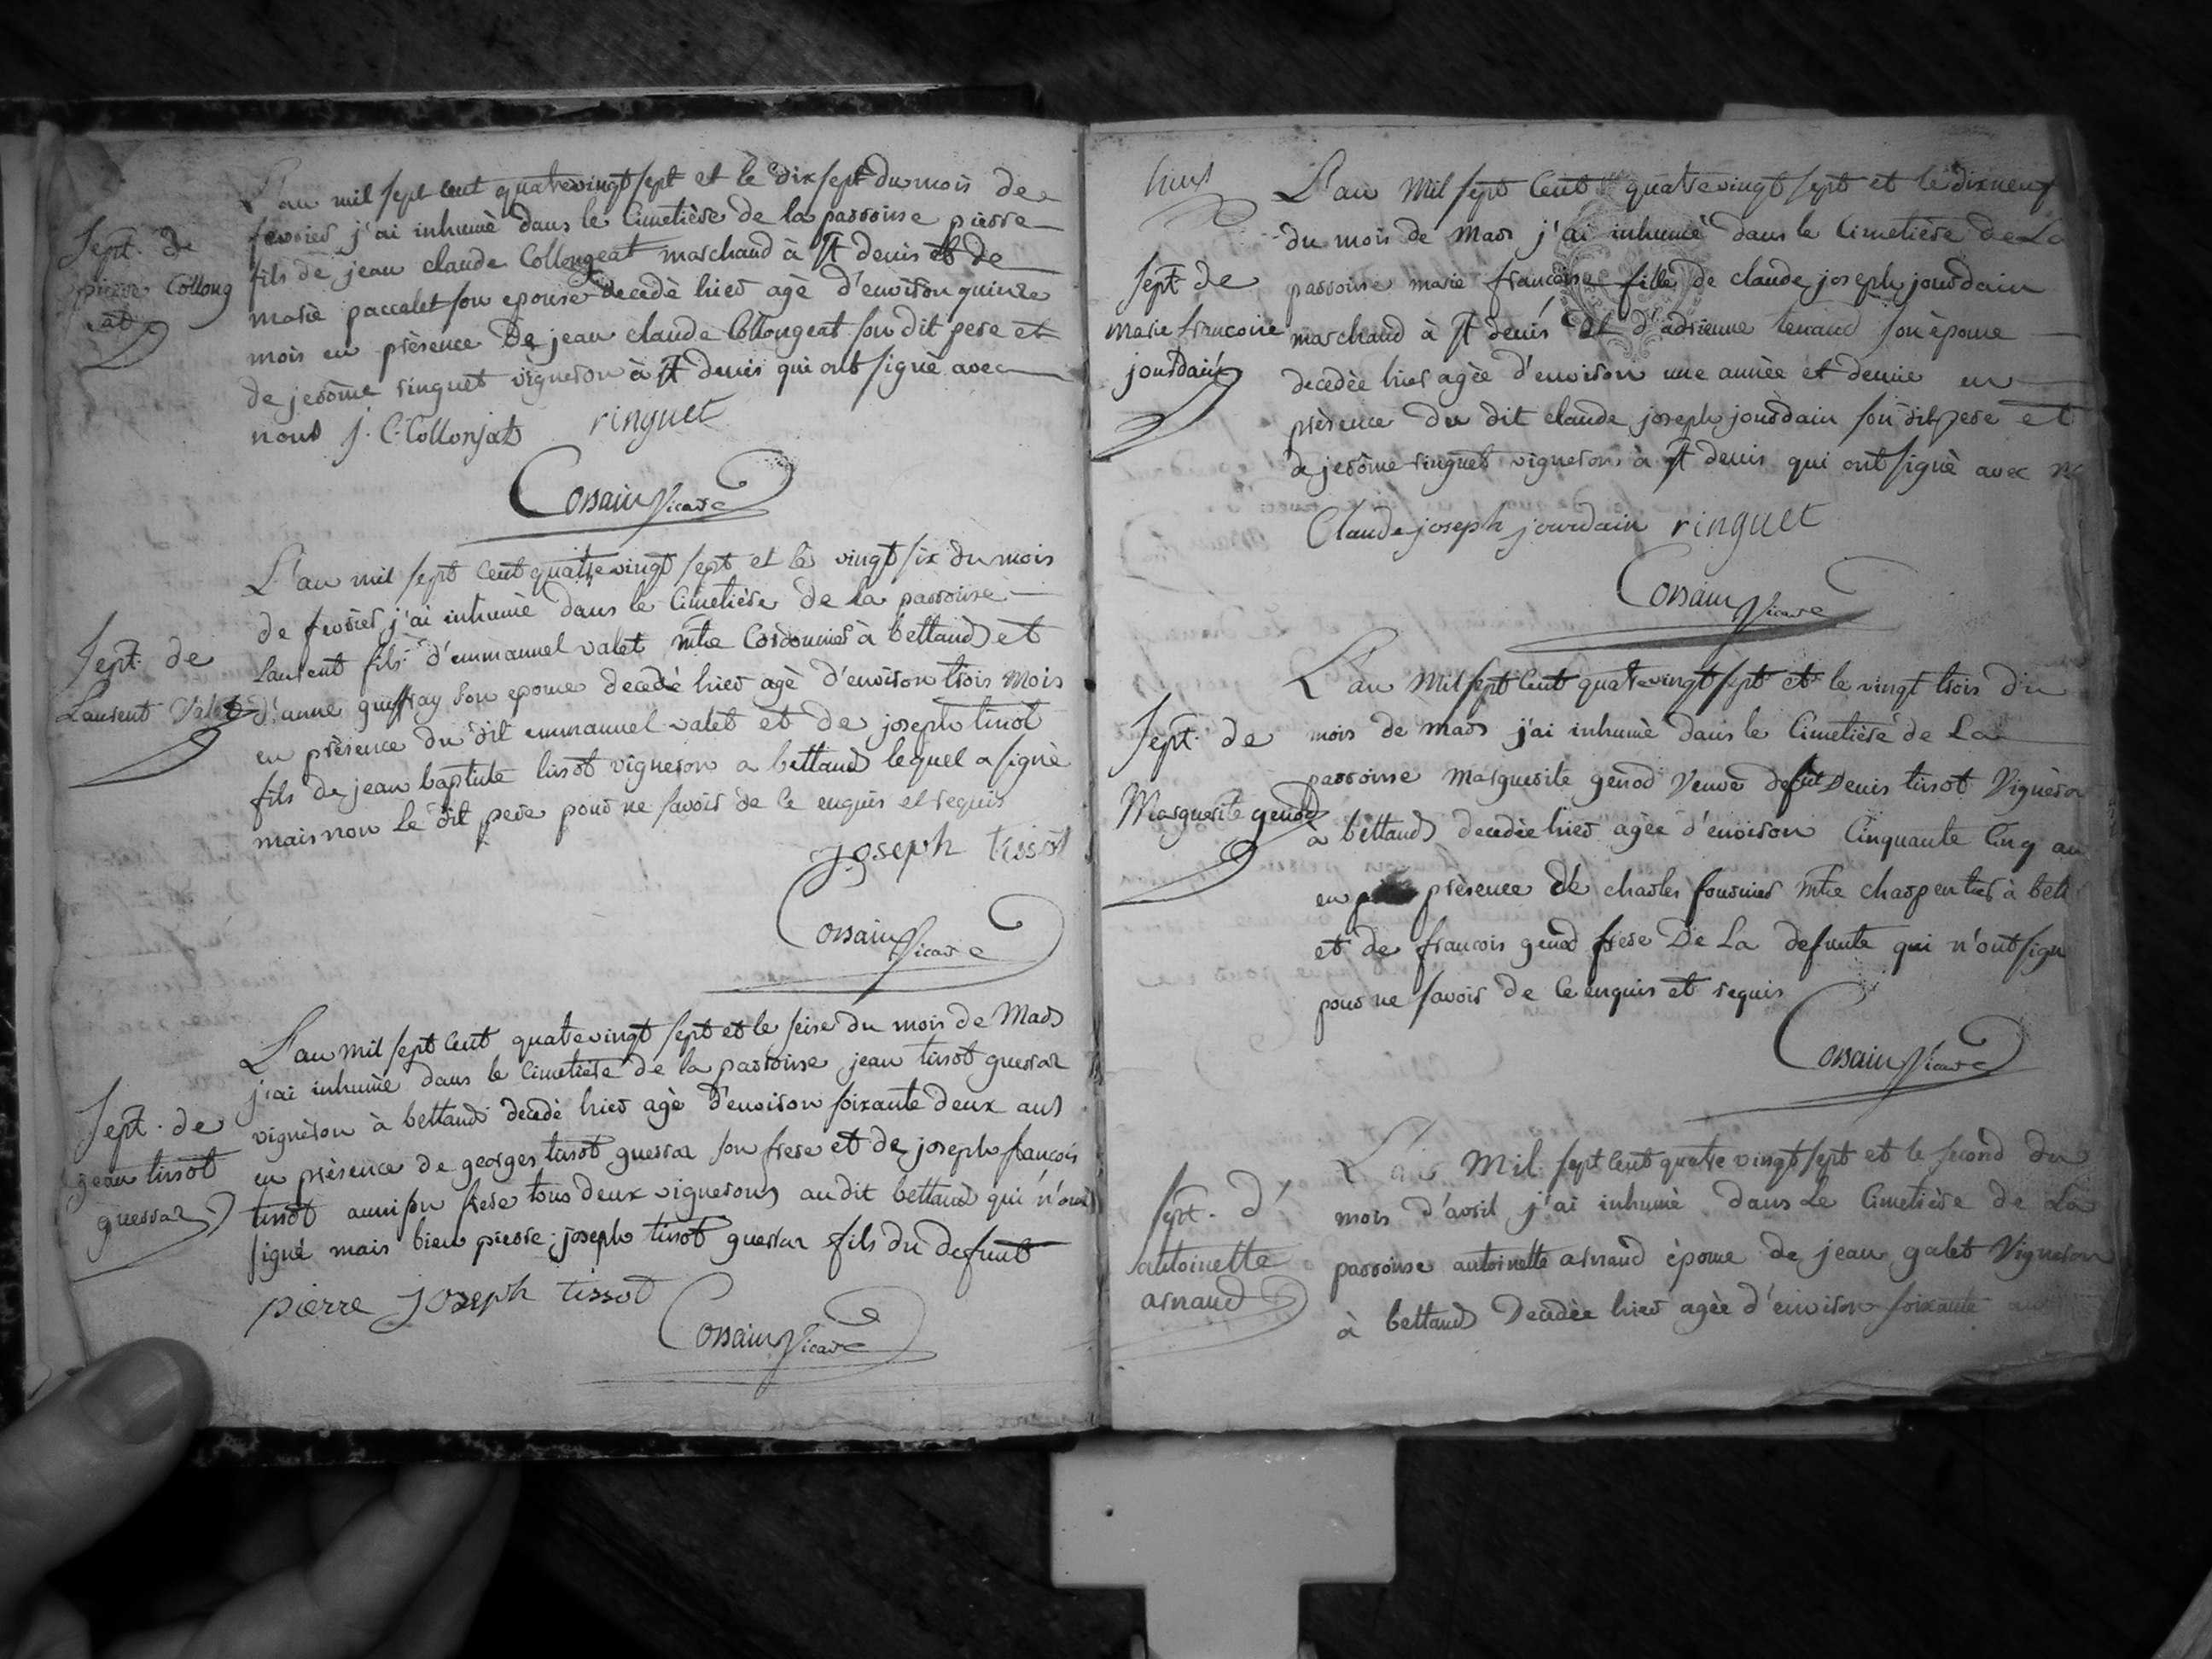 L'an mil sept cent quatrevingt sept et le dix sept du mois de
fevrier j'ai inhumè dans le Cimetière de la parroisse pierre
Sept. de
pierre Collong
eat
fils de jean claude Collongeat marchand à St denis et de
marie paccalet son epouse decedè hier agè d'environ quinze
mois en prèsence de jean claude Collongeat son dit pere et
de jerôme ringuet vigneron à St denis qui ont signè avec
nous J. C. Collonjat ringuet
Corsain Vicare
L'an mil sept cent quatrevingt sept et le vingt six du mois
de fevrier j'ai inhumè dans le Cimetière de la parroisse
Sept. de
Laurent Valet
Laurent fils d'emmanuel valet mtre Cordonnier à bettand et
d'anne guffray son epouse decedè hier agè d'environ trois mois
en prèsence du dit emmanuel valet et de joseph tissot
fils de jean baptiste tissot vigneron a bettand lequel a signè
mais non le dit pere pour ne savoir de ce enquis et requis
joseph tissot
Corsain Vicare
L'an mil sept cent quatrevingt sept et le seize du mois de Mars
j'ai inhumè dans le Cimetière de la parroisse jean tissot guerraz
Sept. de
jean tissot
guerraz
vignèron à bettand decedè hier agè d'environ soixante deux ans
en prèsence de georges tissot guerraz son frere et de joseph francois
tissot aussi son frere tous deux vignerons audit bettand qui n'ont
signé mais bien pierre joseph tissot guerraz fils du defunt
pierre joseph tissot
Corsain Vicare
huit
L'an Mil sept Cent quatrevingt sept et le dixneuf
du mois de Mars j'ai inhumè dans le Cimetière de La
Sept. de
marie francoise
jourdain
parroisse marie francoise fille de claude joseph jourdain
marchand à St denis et d'adrienne tenand son èpouse
decedèe hier agèe d'environ une annèe et demie en
prèsence du dit claude joseph jourdain son dit pere et
de jerôme ringuet vigneron à St denis qui ont signè avec
Claude joseph jourdain ringuet
Corsain Vicare
L'an Mil sept Cent quatrevingt sept et le vingt trois du
mois de mars j'ai inhumè dans le Cimetière de La
Sept. de
Marguerite genod
parroisse Marguerite genod Veuve de fut Denis tissot Vignèron
a bettand decedèe hier agèe d'environ Cinquante Cinq an
en prèsence de charles fournier mtre charpentier à bett
et de francois genod frere De La defunte qui n'ont sign
pour ne savoir de Ce enquis et requis
Corsain Vicare
L'an Mil sept Cent quatre vingt sept et le second du
mois d'avril j'ai inhumè dans Le Cimetière de La
Sept. d'
antoinette
arnaud
parroisse antoinette arnaud èpouse de jean galet Vigneron
à bettand Decedèe hier agèe d'environ soixante